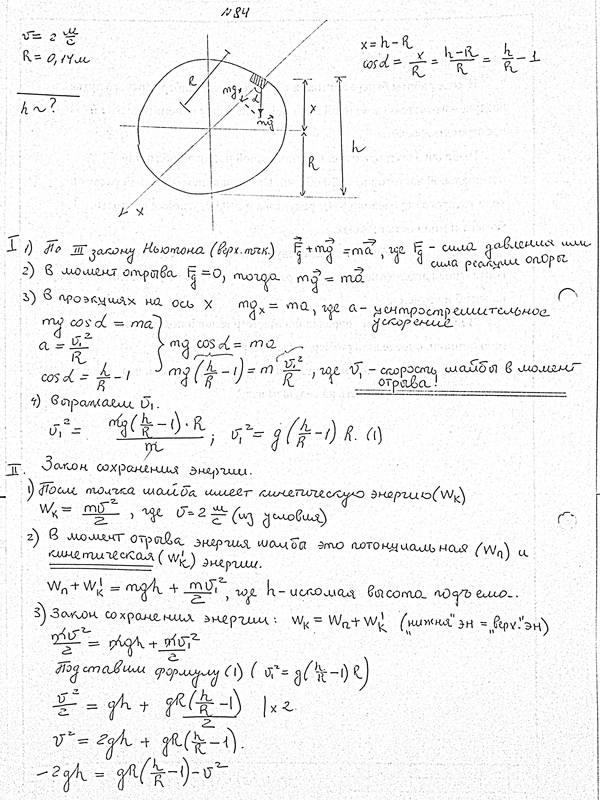 №84
v = 2 м/с
R = 0,14 м
h ~ ?
x = h - R
cos α = x/R = (h-R)/R = h/R - 1
R
mgₓ
α
mg⃗
x
R
h
x
I 1) По III закону Ньютона (верх. тчк.) F⃗g + mg⃗ = ma⃗, где F⃗g - сила давления или
сила реакции опоры
2) В момент отрыва F⃗g = 0, тогда mg⃗ = ma⃗
3) В проекциях на ось x mgₓ = ma, где a - центростремительное
ускорение
mg cos α = ma
a = v₁²/R
cos α = h/R - 1
} mg cos α = ma
mg(h/R - 1) = m v₁²/R, где v₁ - скорость шайбы в момент
отрыва!
4) Выражаем v₁.
v₁² = mg(h/R - 1)·R / m ; v₁² = g(h/R - 1) R. (1)
II. Закон сохранения энергии.
1) После толчка шайба имеет кинетическую энергию (Wк)
Wк = mv²/2, где v = 2 м/с (из условия)
2) В момент отрыва энергия шайбы это потонциальная (Wп) и
кинетическая (Wк') энергии.
Wп + Wк' = mgh + mv₁²/2, где h - искомая высота подъема..
3) Закон сохранения энергии: Wк = Wп + Wк' („нижня" эн = „верх." эн)
mv²/2 = mgh + mv₁²/2
Подставим формулу (1) ( v₁² = g(h/R - 1) R)
v²/2 = gh + gR(h/R - 1)/2 | x 2
v² = 2gh + gR(h/R - 1).
-2gh = gR(h/R - 1) - v²